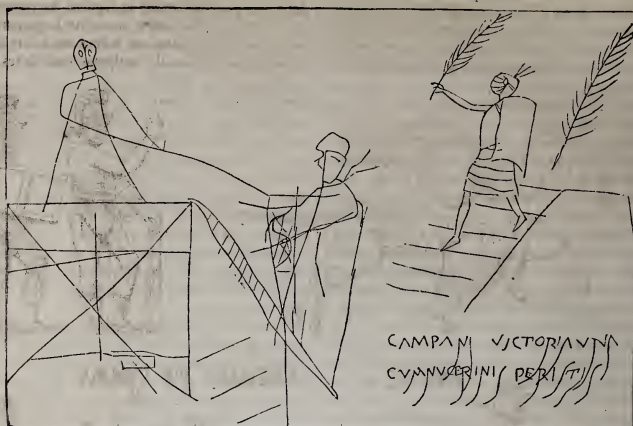 CAMPANI VICTORIAVNA
CVMNVCERINIS PERISTIS